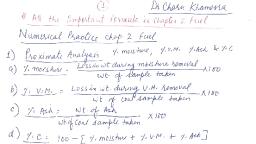 ①
Dr Charu Khamesra
* All the Important formula in chapter 2 Fuel
Numerical Practice chap 2 Fuel
1) Proximate Analysis % moisture, % V.M. % Ash & F.C
a) % moisture = Loss in wt during moisture removal x100
wt of sample taken
b) % V.M. = Loss in wt during V.M. removal x100
wt of coal sample taken
c) % Ash = wt of Ash x100
wt of coal sample taken
d) % C = 100 - [ % moisture + % V.M. + % Ash ]